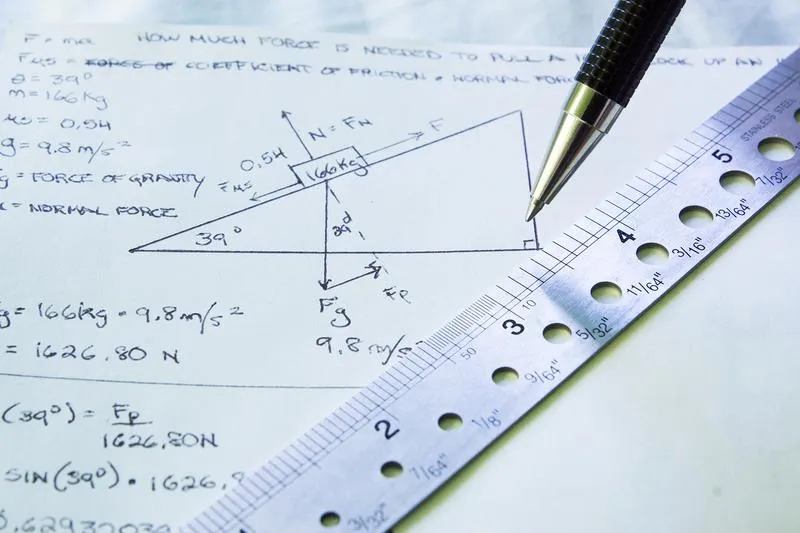 F = ma HOW MUCH FORCE IS NEEDED TO PULL A BLOCK UP AN
= COEFFICIENT OF FRICTION • NORMAL
θ = 39°
m = 166 kg
= 0,54
g = 9.8 m/s²
= FORCE OF GRAVITY
= NORMAL FORCE
N = FN
F
0,54
166kg
39°
39°
Fg
Fp
9.8 m/s
= 166kg • 9.8 m/s²
= 1626.80 N
(39°) = Fp
1626.80N
SIN(39°) • 1626.8
STAINLESS STEEL
5
7/32"
13/64"
4
3/16"
11/64"
10
3
5/32"
50
9/64"
2
1/8"
7/64"
3/32"